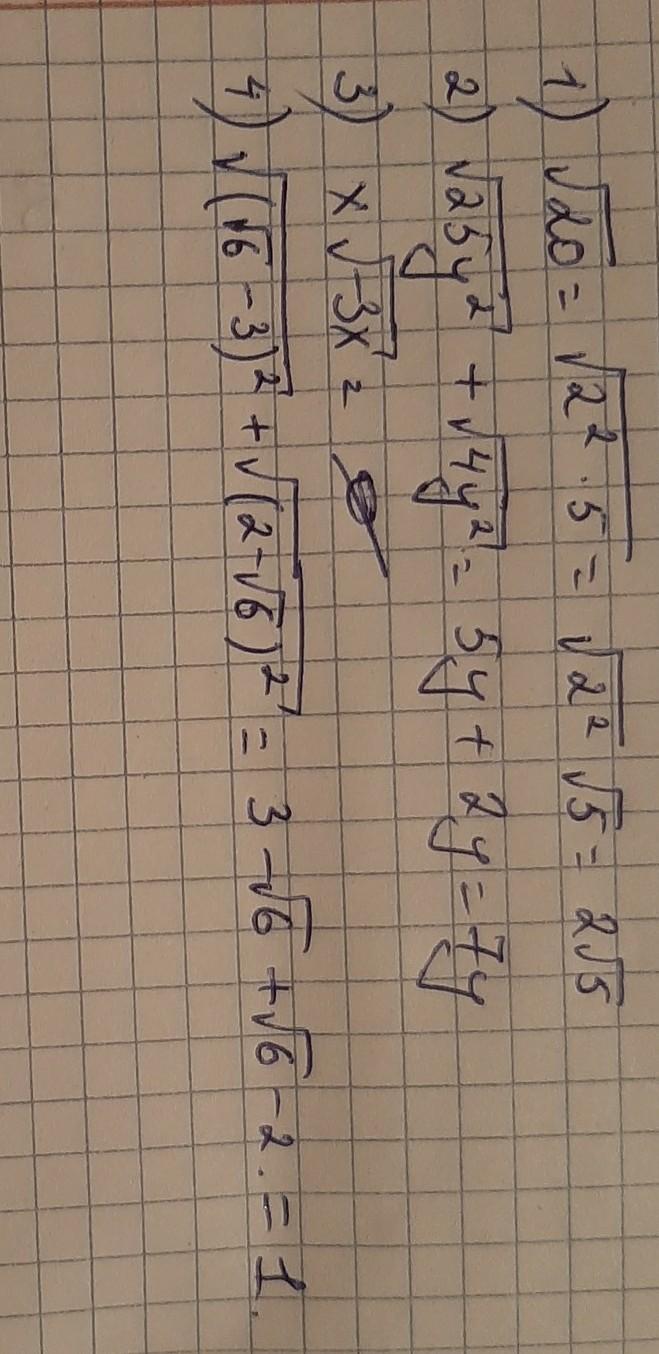 1) √20 = √2² · 5 = √2² √5 = 2√5
2) √25y² + √4y² = 5y + 2y = 7y
3) x√-3x =
4) √(√6 - 3)² + √(2-√6)² = 3 - √6 + √6 - 2 = 1.